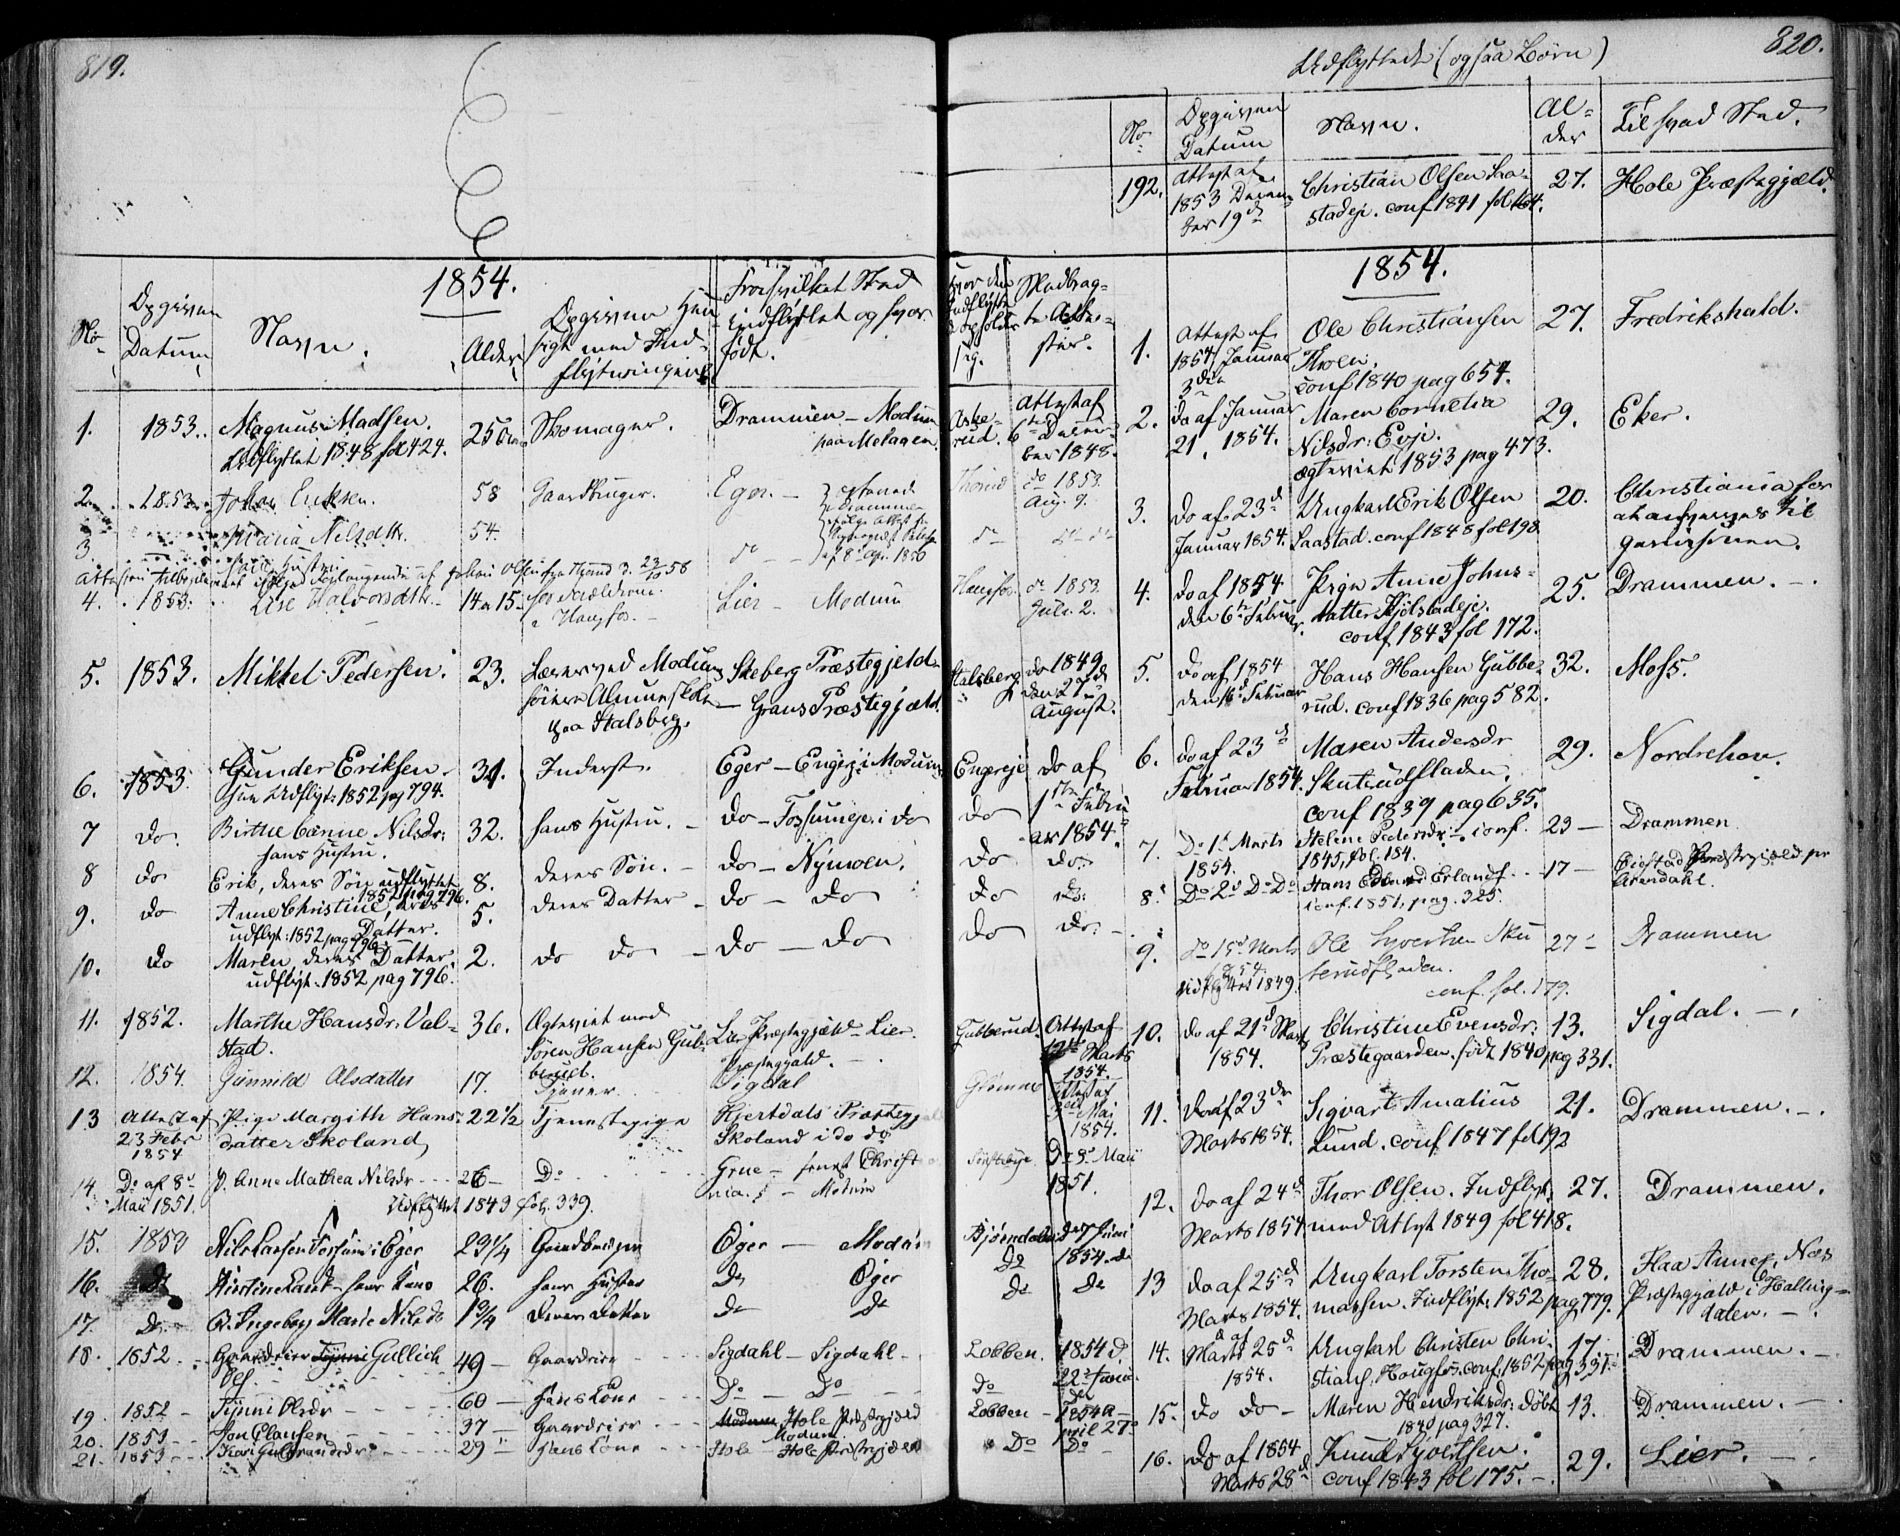 819.
1854.
No
Opgiven
Datum
Navn.
Alder
Opgiven Hen
sigt med Ind-
flytningen
Fra hvilket Sted
indflyttet og hvor
født.
Hvor den
Indflytte
de opholder
sig.
Medbrag-
te Atte-
ster.
1. 1853. Magnus Madsen. 25 Drammen - Modum
Udflyttet 1848 fol 424. Skomager. paa Melaaen.
Aske-
rud.
Attest af
6te Decem-
ber 1848.
2. 1853. Johan Eriksen. 58 Gaardbruger. Eger. -
Thorud do 1853
Aug. 9.
3 Maria Nilsdtr. 54. do
hans Hustru
4. 1853. Lise Halvorsdtr. 14 a 15 Lier - Modum
Haugfos. do 1853.
Juli 2.
5. 1853. Mikkel Pedersen. 23. Lærer ved Modums Skeberg Præstegjeld
høiere Almueskole - Grans Præstegjæld.
paa Stalsberg.
Stalsberg do 1849
den 27d
August.
6. 1853. Gunder Eriksen. 31. Inderst. Eger - Engerej. i Modum
Udflyt: 1852 pg 794.
Engereje do af
1ste Febru
ar 1854.
7 do. Birthe Hanne Nilsdr: 32. hans Hustru. - do - Fossumeje. i do do
hans Hustru.
8 do Erik, deres Søn udflyttet 8. deres Søn. - do - Nymoen. do do.
1852 pag 796.
9. do Anne Christine, deres 5. deres Datter - do - do do do.
udflyt: 1852 pag 796. Datter.
10. do Maren, deres Datter. 2. do do - do - do do do. -
udflyt: 1852 pag 796.
11. 1852. Marthe Hansdr: Val- 36. Ægteviet med Lier Præstegjæld - Lier
stad. Søren Hansen Gub- Præstegjæld. -
berud.
Gubberud. Attest af
12te Marts
1854.
12. 1854. Gunnild Olsdatter 17. Tjener. Sigdal
Attest af
Mai
1854.
13 Attest af Pige Margith Hans- 22½ Tjenestepige Hjertdals Præstegjæld
23 Febr datter Skoland Skoland i do do
1854
14 Do af 8d P. Anne Mathea Nilsdr - - 26 - Do Grue - senest Christia
Mai 1851. Udflyttet 1849 fol. 339. nia. - Modum
Do 8d Mai
1851.
15. 1853 Nils Larsen Fossum i Eger 29¼ Gaardbruger Eger - Modum
Bjørndalen d. 7 Juni
1854. do
16. Do hans Kone 26. hans Hustru Do Eger Do
17. Do P. Ingeborg Marie Nilsdr 1¾ deres Datter Do Do Do Do
18. 1852 Gaardeier Gullich 49 - Gaardeier Sigdahl - Sigdahl -
Lobben. 1854 d.
22d Juni
19. 1852 - Tynni Olsdr 60 - Hans Kone Do - Do - Do do
20. 1853 - Jon Clausen 37 - Gaardeier Hole Præstegjeld
Modum.
Lobben - 1854 A-
pril 27d
21. 1853 - Kari Gulbrandsdr 29 - Hans Kone Hole - Hole Præstegjæld Do Do
820.
Udflyttede (ogsaa Børn)
No
Opgiven
Datum
Navn.
Al-
der
Til hvad Sted.
192. Attest af Christian Olsen Saa- 27. Hole Præstegjæld.
1853 Decem stadeje. conf 1841 fol 164.
ber 19d
1854.
1. Attest af Ole Christiansen 27. Fredrikshald.
1854 Januar Thoen.
3die conf 1840 pag 654.
2. do af Januar Maren Cornelia 29. Eker.
21, 1854. Nilsdr: Evje.
ægteviet: 1853 pag 473.
3. do af 23d Ungkarl Erik Olsen 20. Christiania for
Januar 1854. Saastad. conf 1848 fol 198 at anhverves til
garnisonen.
4. do af 1854 Pige Anne Johns- 25. Drammen. -
den 6te Februar. datter Kjølstadeje.
conf 1843 fol 172.
5. do af 1854 Hans Hansen Gubbe- 32. Moss.
den 16d Februar rud. conf 1836 pag 582.
6. do af 23d Maren Andersdr 29. Nordrehov.
Februar 1854. Skuterudfladen.
conf 1839 pag 635.
7. Do 1d Marts Helene Pedersdr - conf. 23 - Drammen
1854. 1845, fol. 184.
8. Do 2d Do Do Hans Edvard Erlands. 17 - Øiestad Præstegjæld pr
conf. 1851, pag. 325. Arendahl.
9. do 15d Marts Ole Syvertsen Sku 27 - Drammen
1854. terudfladen.
Indflyttet 1849 conf. fol. 179.
10. do af 21d Marts Christine Evensdr: 13. Sigdal. -
1854. Præstegaarden. født 1840 pag 331.
11. do af 23de Sigvart Amalius 21. Drammen. -.
Marts 1854. Lund. conf 1847 fol 192
12. do af 24d Thor Olsen. Indflyt. 27. Drammen.
Marts 1854 med Attest 1849 fol 418.
13 do af 25d Ungkarl Torsten Tho- 28. Flaa Annex, Næs
Marts 1854. massen. Indflyt: 1852 pag 779. Præstegjæld i Halling-
dalen. -
14. do af Ungkarl Christen Chri- 17. Drammen. -
Marts 25d stians. Haugfos. conf. 1852 pag 331.
1854.
15. do do - Maren Hendriksdr: døbt 13. Drammen. -
1840 pag 327.
16. do af 1854 Knud Syvertsen. 29. Lier. -.
Marts 28d conf 1843 fol 175. -